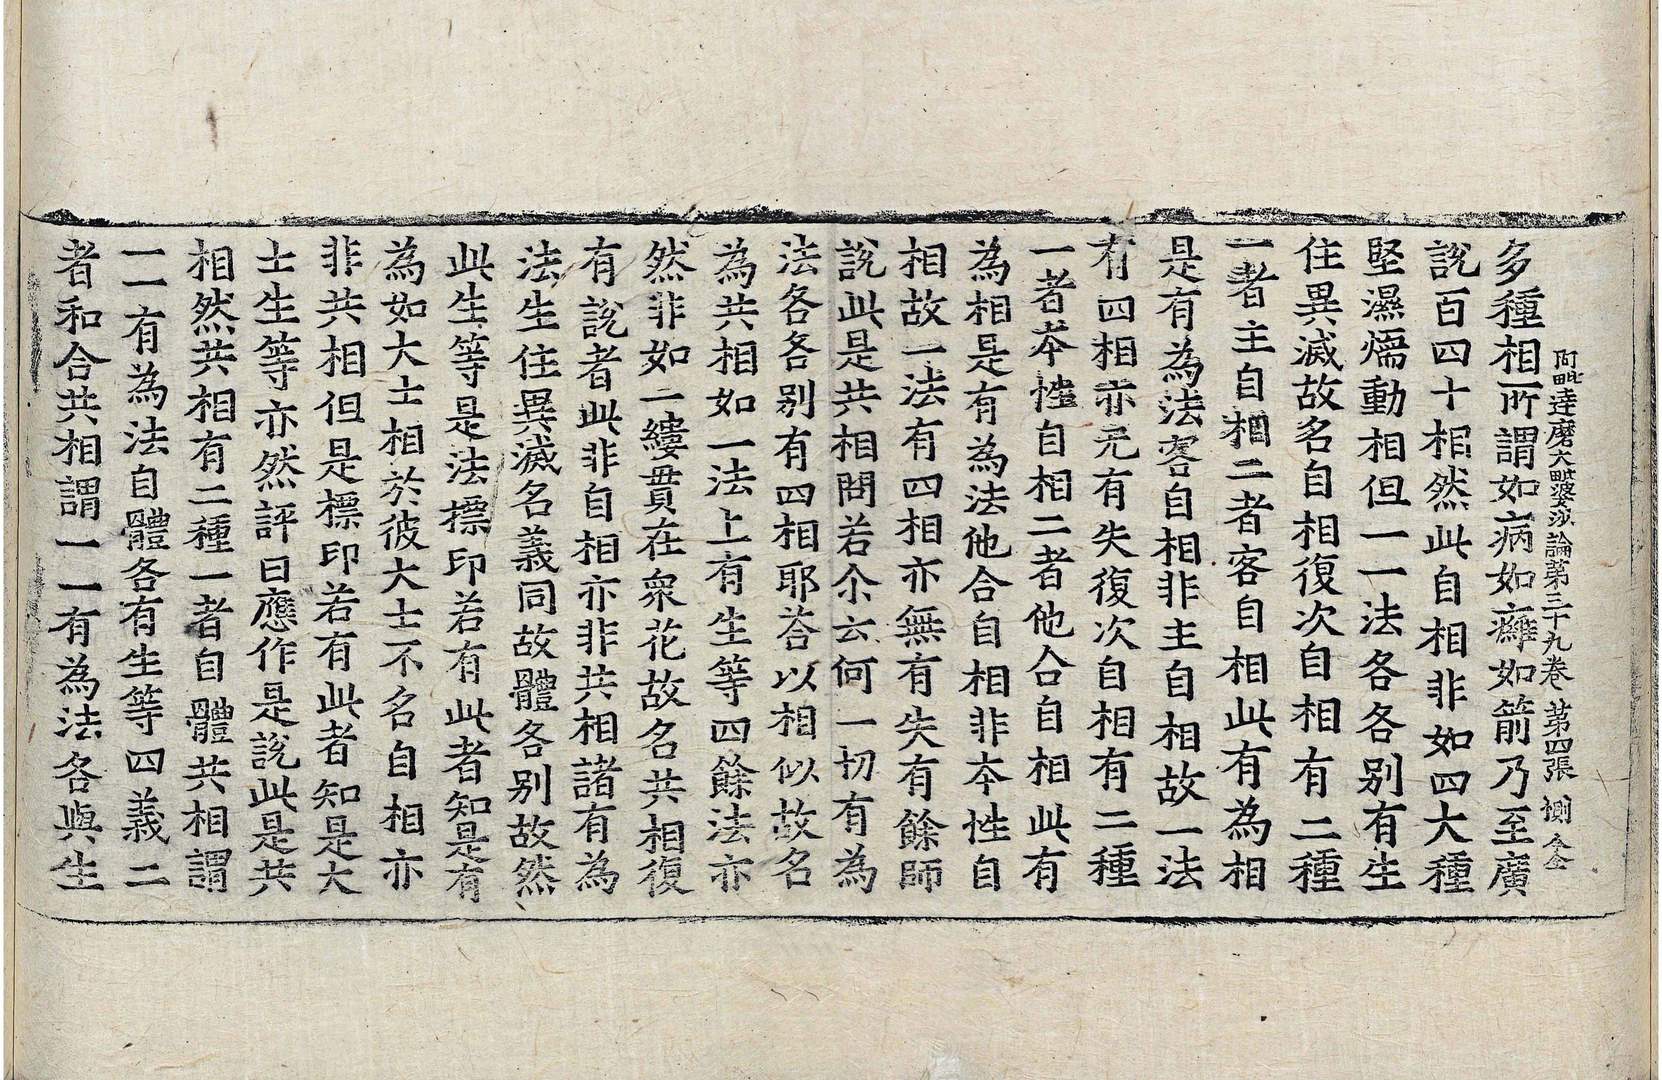 阿毗達磨大毗婆沙論第三十九卷 第四張 惻
多種相所謂如病如癰如箭乃至廣
說百四十相然此自相非如四大種
堅濕煗動相但一一法各各别有生
住異滅故名自相復次自相有二種
一者主自相二者客自相此有為相
是有為法客自相非主自相故一法
有四相亦无有失復次自相有二種
一者本性自相二者他合自相此有
為相是有為法他合自相非本性自
相故一法有四相亦無有失有餘師
說此是共相問若尒云何一切有為
法各各别有四相耶荅以相似故名
為共相如一法上有生等四餘法亦
然非如一縷貫在衆花故名共相復
有說者此非自相亦非共相諸有為
法生住異滅名義同故體各别故然
此生等是法摽印若有此者知是有
為如大士相於彼大士不名自相亦
非共相但是標印若有此者知是大
士生等亦然評曰應作是說此是共
相然共相有二種一者自體共相謂
一一有為法自體各有生等四義二
者和合共相謂一一有為法各與生